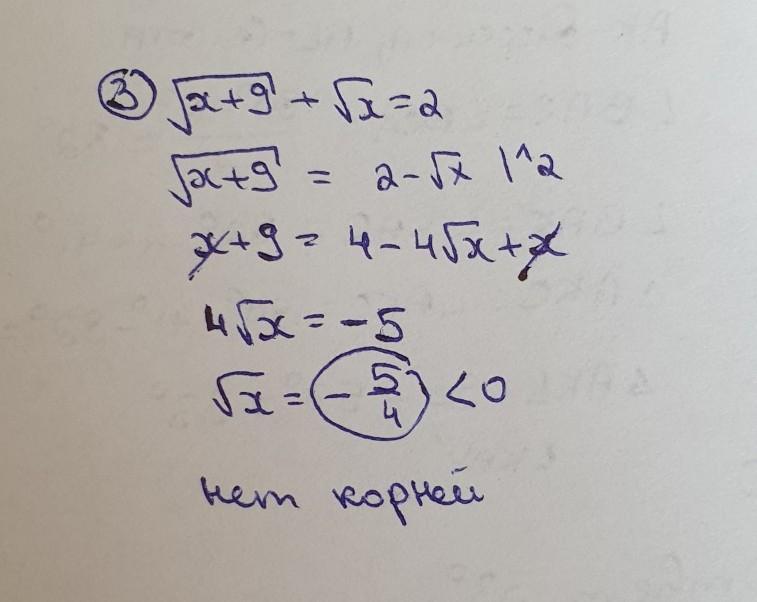 ③ √(x+9) + √x = 2
√(x+9) = 2 - √x |^2
x + 9 = 4 - 4√x + x
4√x = -5
√x = -5/4 < 0
нет корней